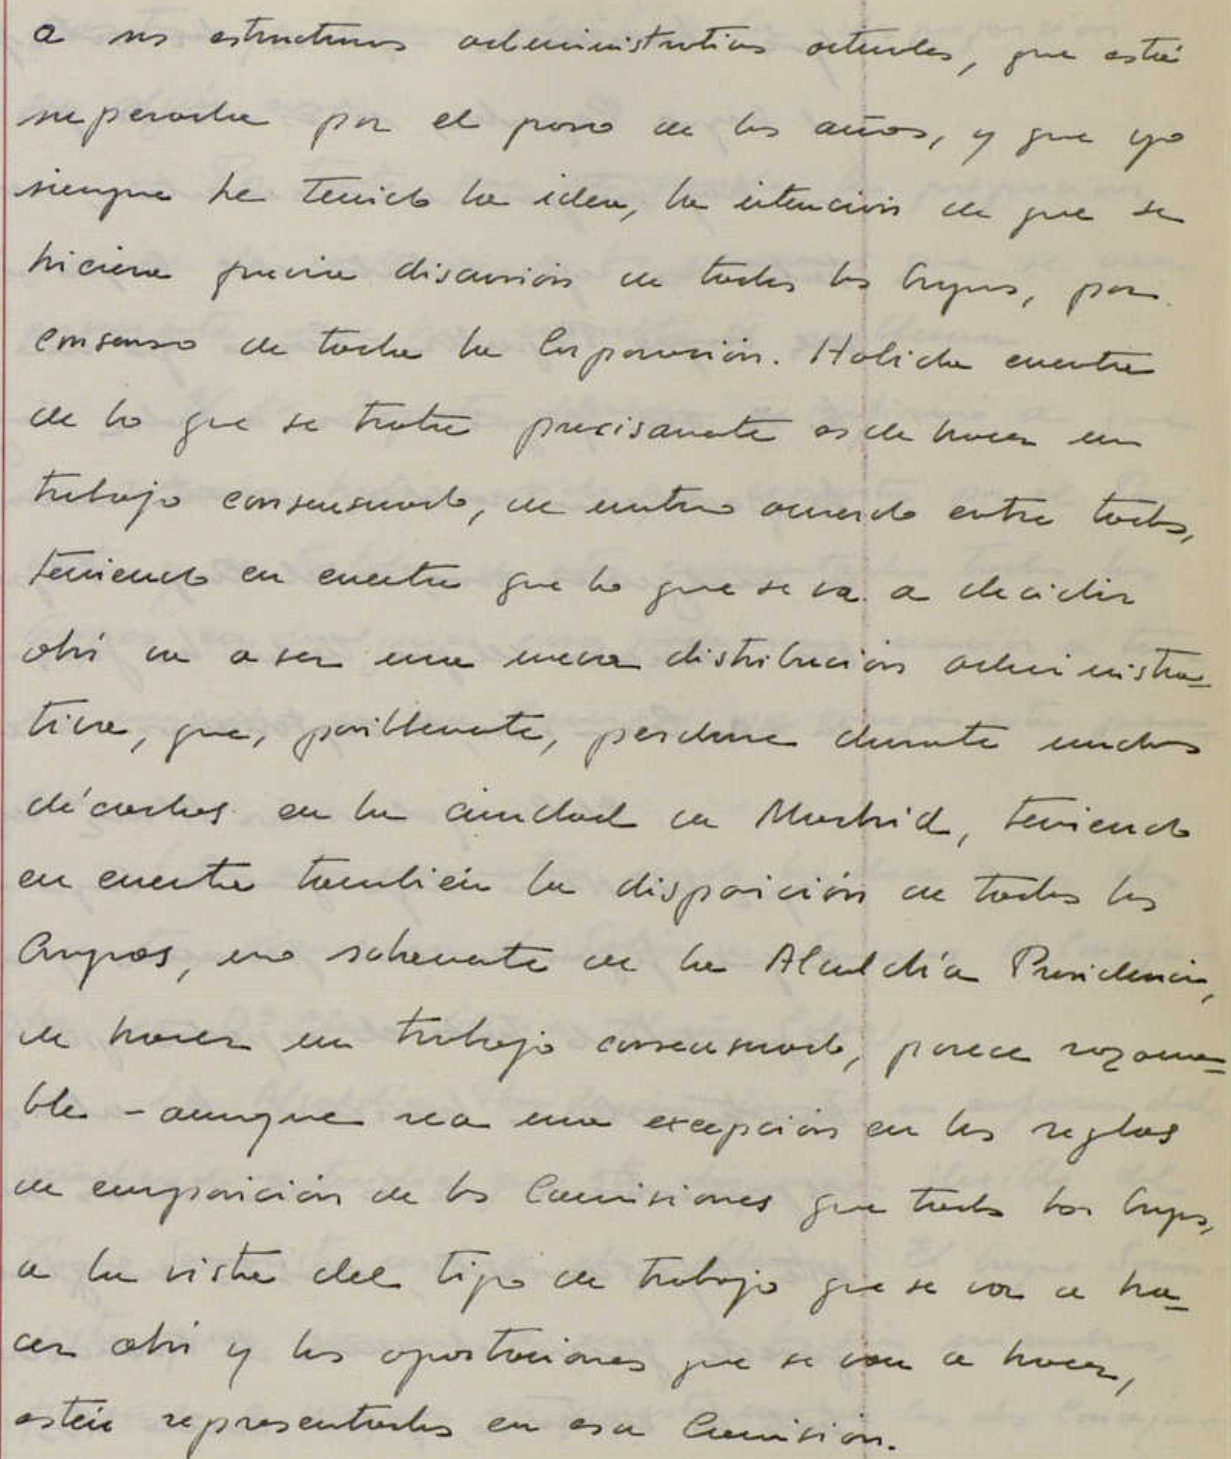 a sus estructuras administrativas actuales, que está
superada por el paso de los años, y que yo
siempre he tenido la idea, la intención de que se
hiciera previa discusión de todos los Grupos, por
consenso de toda la Corporación. Habida cuenta
de lo que se trata precisamente es de hacer un
trabajo consensuado, de mutuo acuerdo entre todos,
teniendo en cuenta que lo que se va a decidir
ahí va a ser una nueva distribución administra-
tiva, que, posiblemente, perdure durante muchas
décadas en la ciudad de Madrid, teniendo
en cuenta también la disposición de todos los
Grupos, no solamente de la Alcaldía Presidencia,
de hacer un trabajo consensuado, parece razona-
ble - aunque sea una excepción en las reglas
de composición de las Comisiones que todos los Grupos,
a la vista del tipo de trabajo que se va a ha-
cer ahí y las aportaciones que se van a hacer,
estén representados en esa Comisión.